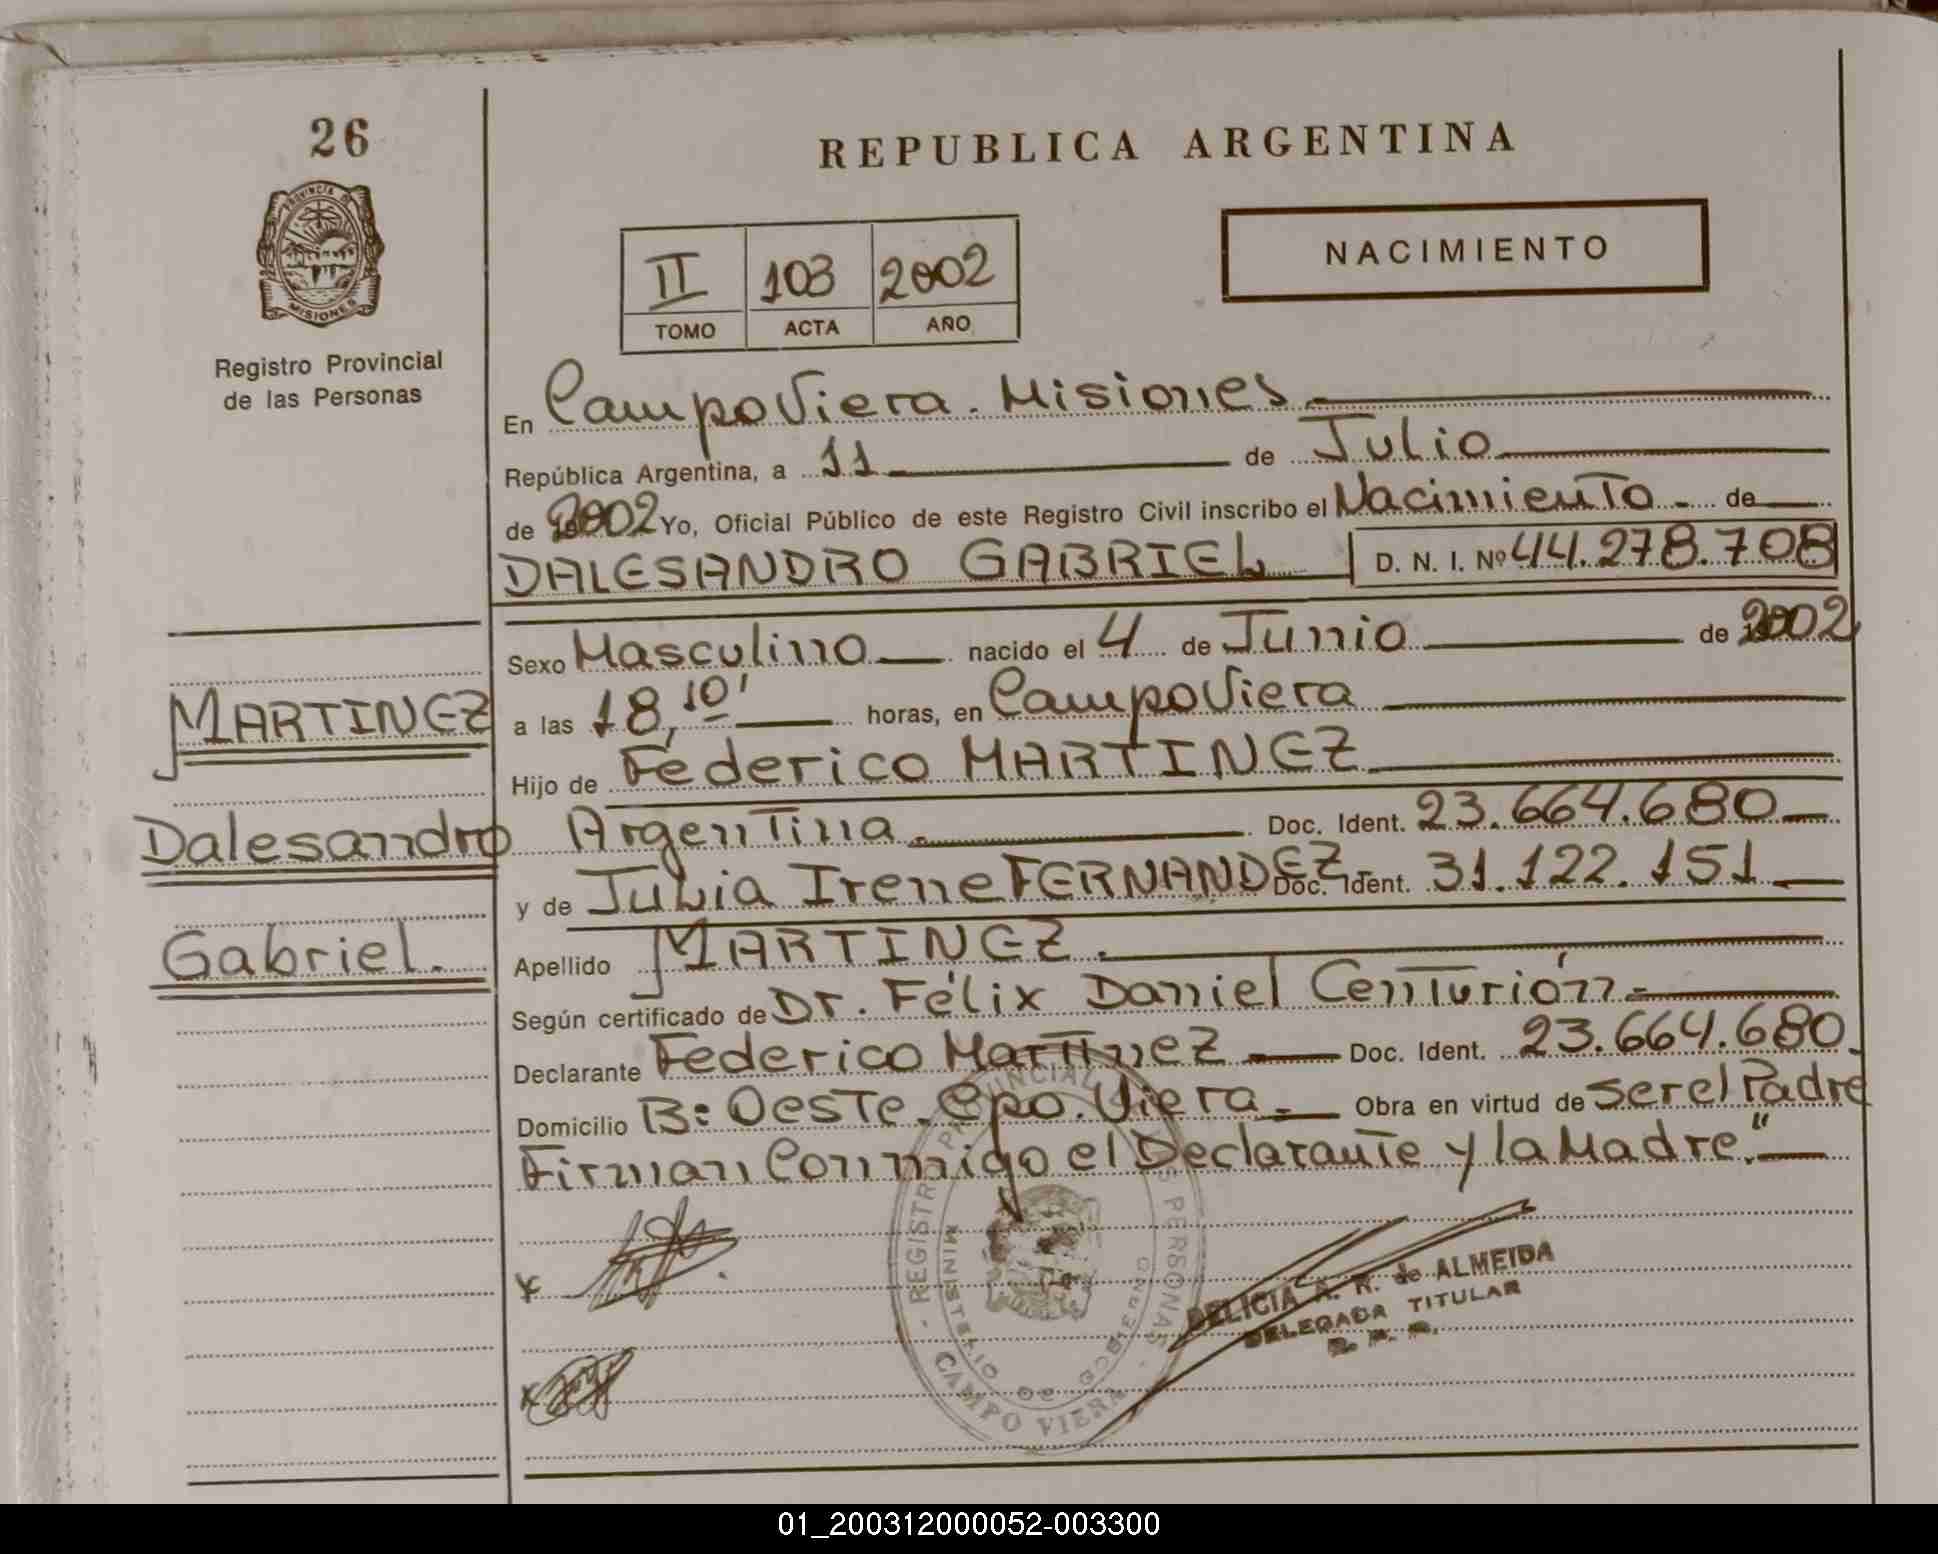 26
REPUBLICA ARGENTINA
PROVINCIA DE
MISIONES
NACIMIENTO
II 103 2002
TOMO ACTA AÑO
Registro Provincial
de las Personas
En Campo Viera. Misiones
República Argentina, a 11 de Julio
de 2002 Yo, Oficial Público de este Registro Civil inscribo el Nacimiento de
DALESANDRO GABRIEL D. N. I. Nº 44.278.708
Sexo Masculino nacido el 4 de Junio de 2002
MARTINEZ
a las 18,10' horas, en Campo Viera
Hijo de Féderico MARTINEZ
Dalesandro
Argentina. Doc. Ident. 23.664.680
y de Julia Irene FERNANDEZ Doc. Ident. 31.122.151
Gabriel.
Apellido MARTINEZ.
Según certificado de Dr. Félix Daniel Centurión.
Declarante Federico Martinez Doc. Ident. 23.664.680.
Domicilio B: Oeste. Cpo. Viera. Obra en virtud de ser el Padre
Firman Conmigo el Declarante y la Madre."
REGISTRO PROVINCIAL PERSONAS
MINISTERIO DE GOBIERNO
CAMPO VIERA
DELICIA A. R. de ALMEIDA
DELEGADA TITULAR
01_200312000052-003300